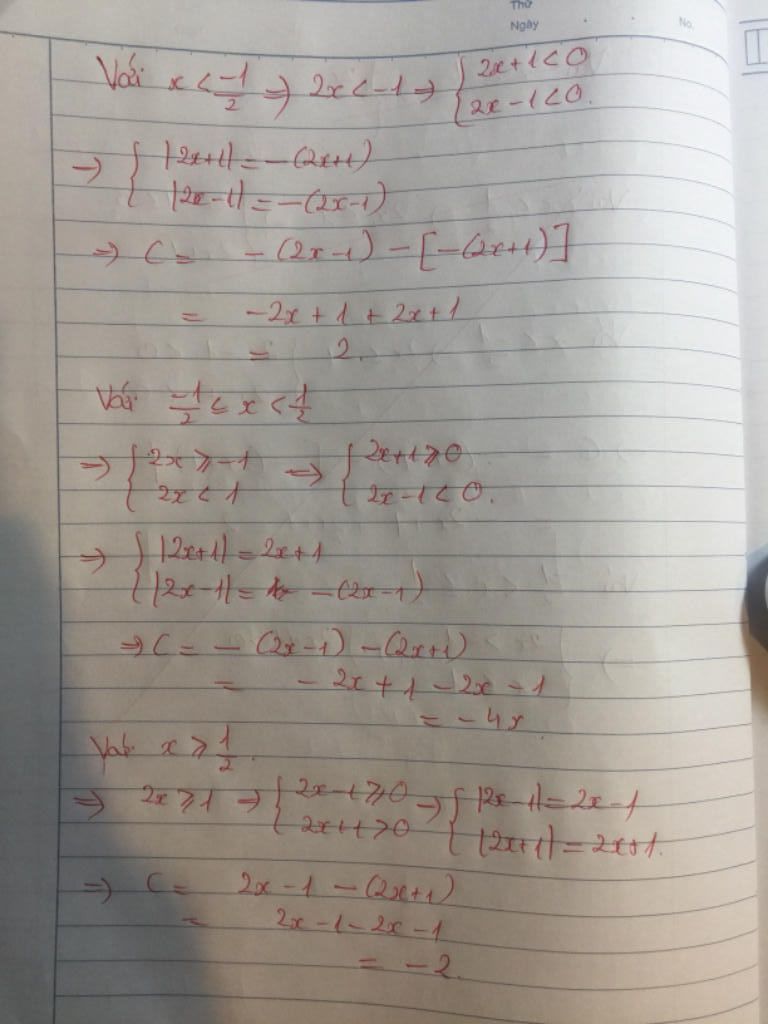 Thứ
Ngày No.
Với x < -1/2 ⇒ 2x < -1 ⇒ { 2x+1 < 0
2x-1 < 0.
⇒ { |2x+1| = -(2x+1)
|2x-1| = -(2x-1)
⇒ C = -(2x-1) - [-(2x+1)]
= -2x + 1 + 2x + 1
= 2.
Với -1/2 ≤ x < 1/2
⇒ { 2x ≥ -1 ⇒ { 2x+1 ≥ 0
2x < 1 2x-1 < 0.
⇒ { |2x+1| = 2x+1
|2x-1| = -(2x-1)
⇒ C = -(2x-1) - (2x+1)
= -2x + 1 - 2x - 1
= -4x
Với x ≥ 1/2.
⇒ 2x ≥ 1 ⇒ { 2x-1 ≥ 0 ⇒ { |2x-1| = 2x-1
2x+1 > 0 |2x+1| = 2x+1.
⇒ C = 2x-1 - (2x+1)
= 2x-1-2x-1
= -2.